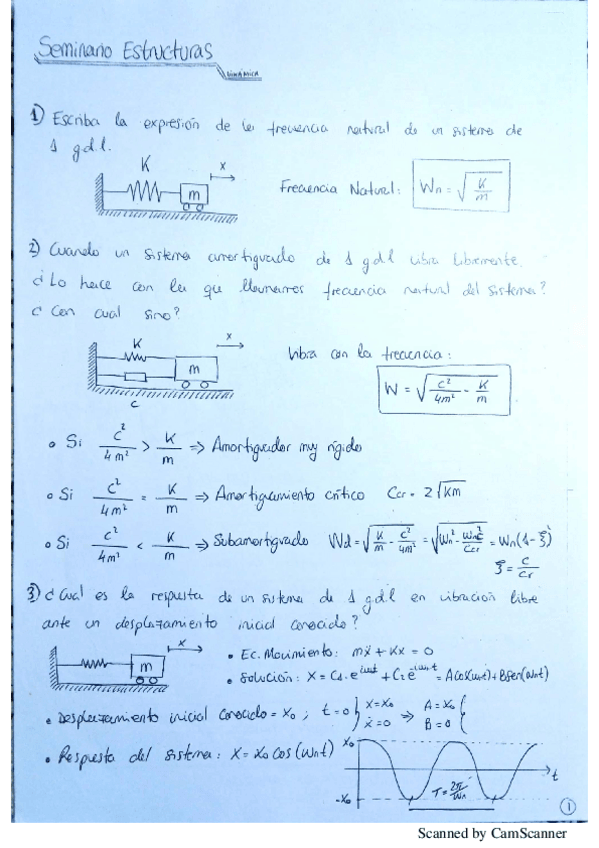 Seminario Estructuras
DINÁMICA
1) Escriba la expresión de la frecuencia natural de un sistema de
1 g.d.l.
K
x
m
Frecuencia Natural: Wn = √(K/m)
2) Cuando un sistema amortiguado de 1 gdl vibra libremente.
¿Lo hace con la que llamamos frecuencia natural del sistema?
¿Con cual sino?
K
x
m
c
Vibra con la frecuencia:
W = √(c²/4m² - K/m)
• Si c²/4m² > K/m => Amortiguador muy rígido
• Si c²/4m² = K/m => Amortiguamiento crítico Ccr = 2√Km
• Si c²/4m² < K/m => Subamortiguado Wd = √(K/m - c²/4m²) = = Wn(1-ξ)
ξ = c/Cr
3) ¿Cual es la respuesta de un sistema de 1 gdl en vibración libre
ante un desplazamiento inicial conocido?
x
m
• Ec. Movimiento: mẍ + Kx = 0
• Solución: X = C1·e^iωnt + C2·e^-iωnt = A cos(ωnt) + B sen(ωnt)
• Desplazamiento inicial conocido = X0 ; t=0 } x = X0 ẋ = 0 => A = X0 B = 0 {
• Respuesta del sistema: X = X0 cos(Wnt)
X0
-X0
t
T = 2π/Wn
1
Scanned by CamScanner